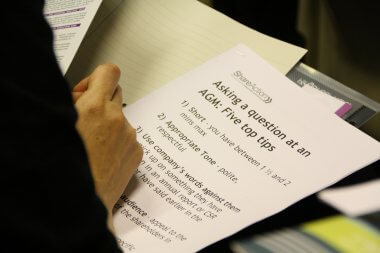 ShareAction»
Asking a question at an
AGM: Five top tips
1) Short - you have between 1 ½ and 2
mins max
2) Appropriate Tone - polite,
respectful
3) Use company's words against them
up on something they have
in an annual report or CSR
have said earlier in the
audience - appeal to the
shareholders in
specific